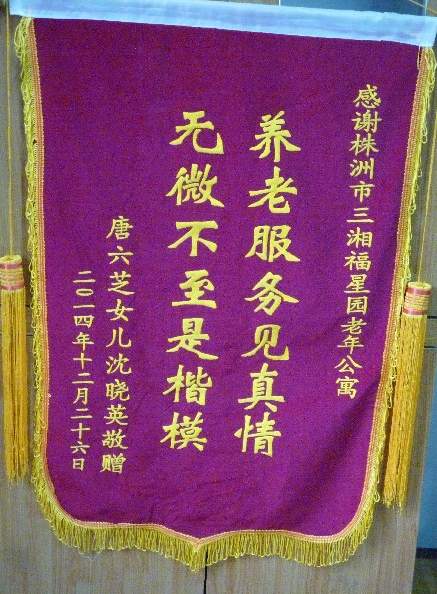 感谢株洲市三湘福星园老年公寓
养老服务见真情
无微不至是楷模
唐六芝女儿沈晓英敬赠
二〇一四年十二月二十六日